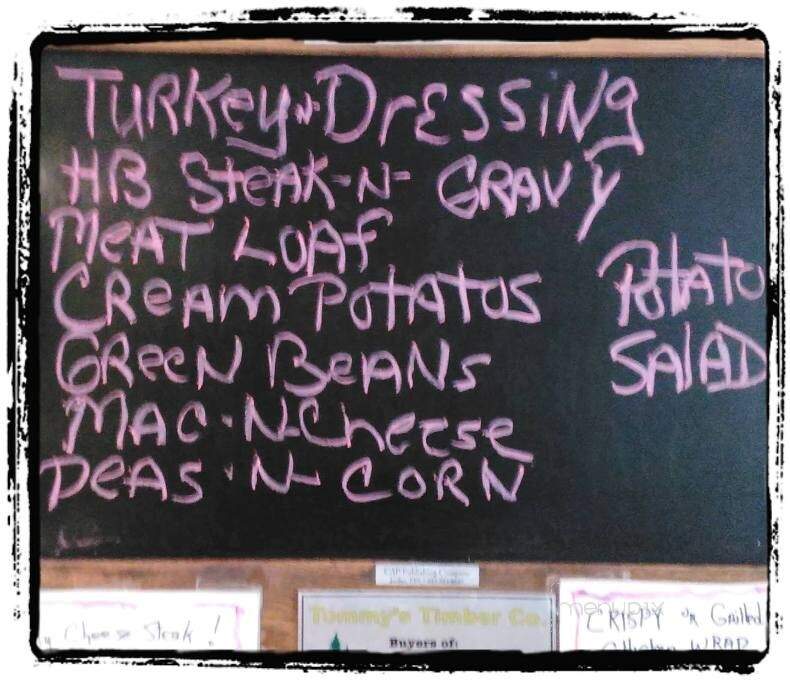 TURKEY-N-DRESSING
HB STEAK-N- GRAVY
MEAT LOAF
CREAM POTATOS
GREEN BEANS
MAC-N-CHEESE
PEAS-N- CORN
POTATO
SALAD
Cheese Steak!
Tommy's Timber Co.
Buyers of:
menupix
CRISPY or Grilled
Chicken WRAP